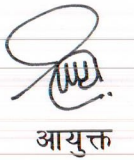 आयुक्त